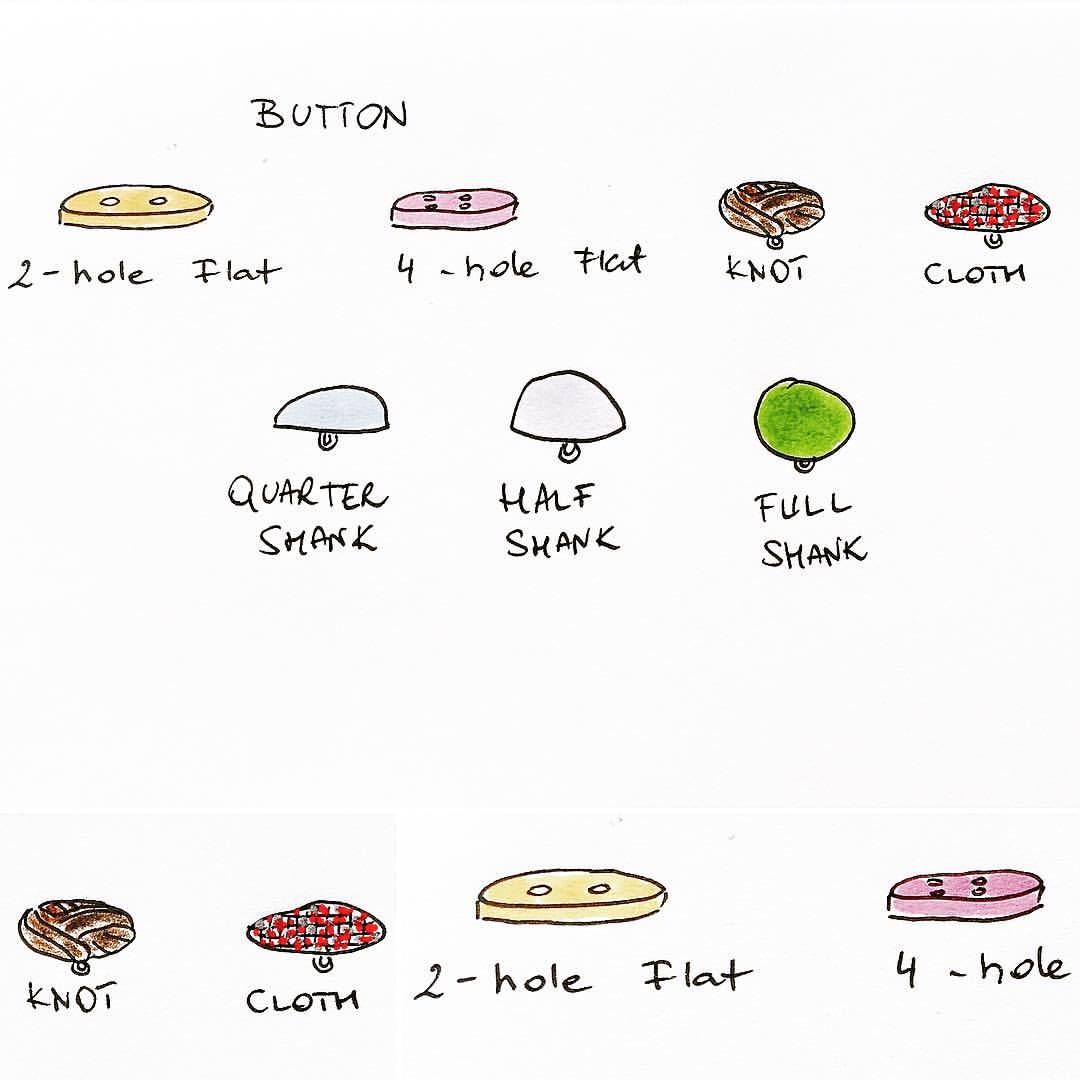 BUTTON
2-hole Flat
4-hole Flat
KNOT
CLOTH
QUARTER
SHANK
HALF
SHANK
FULL
SHANK
KNOT
CLOTH
2-hole Flat
4-hole